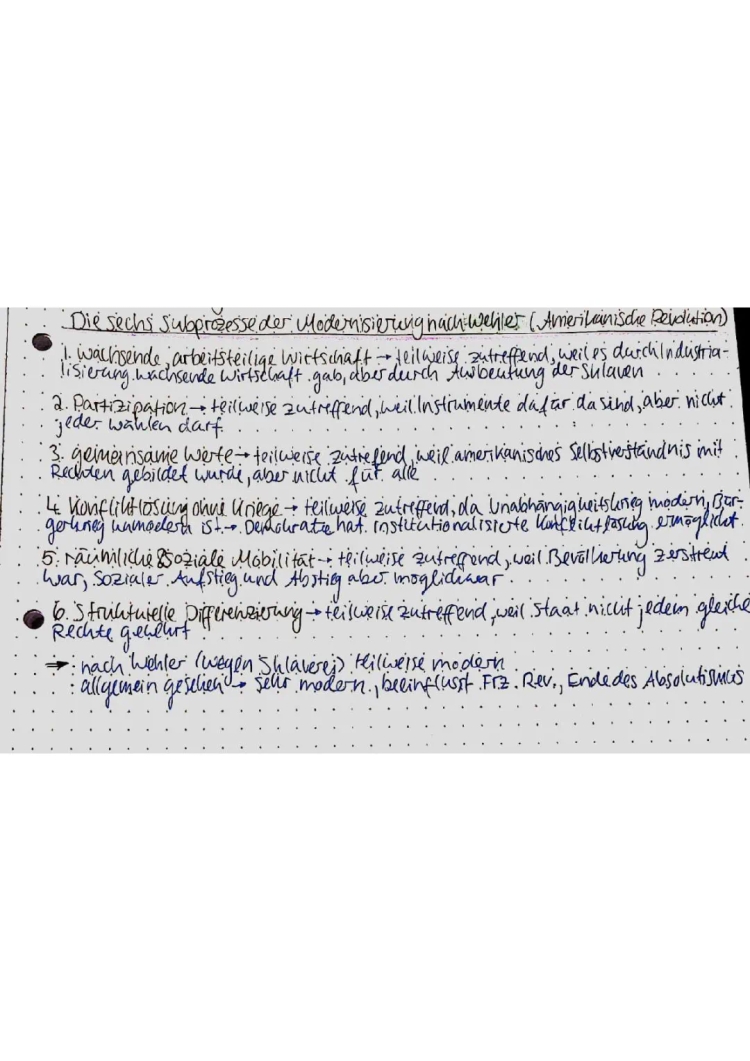 Die sechs Subprozesse der Modernisierung nach Wehler (Amerikanische Revolution)
1. Wachsende, arbeitsteilige Wirtschaft → teilweise zutreffend, weil es durch Industria-
lisierung wachsende Wirtschaft gab, aber durch Ausbeutung der Sklaven
2. Partizipation → teilweise zutreffend, weil Instrumente dafür da sind, aber nicht
jeder wählen darf
3. gemeinsame Werte → teilweise zutreffend, weil amerikanisches Selbstverständnis mit
Rechten gebildet wurde, aber nicht für alle
4. Konfliktlösung ohne Kriege → teilweise zutreffend, da Unabhängigkeitskrieg modern, Bür-
gerkrieg unmodern ist → Demokratie hat institutionalisierte Konfliktlösung ermöglicht
5. räumliche & soziale Mobilität → teilweise zutreffend, weil Bevölkerung zerstreut
war, sozialer Aufstieg und Abstieg aber möglich war
6. Strukturelle Differenzierung → teilweise zutreffend, weil Staat nicht jedem gleiche
Rechte gewährt
→ : nach Wehler (wegen Sklaverei) teilweise modern
: allgemein gesehen → sehr modern, beeinflusst Frz. Rev., Ende des Absolutismus